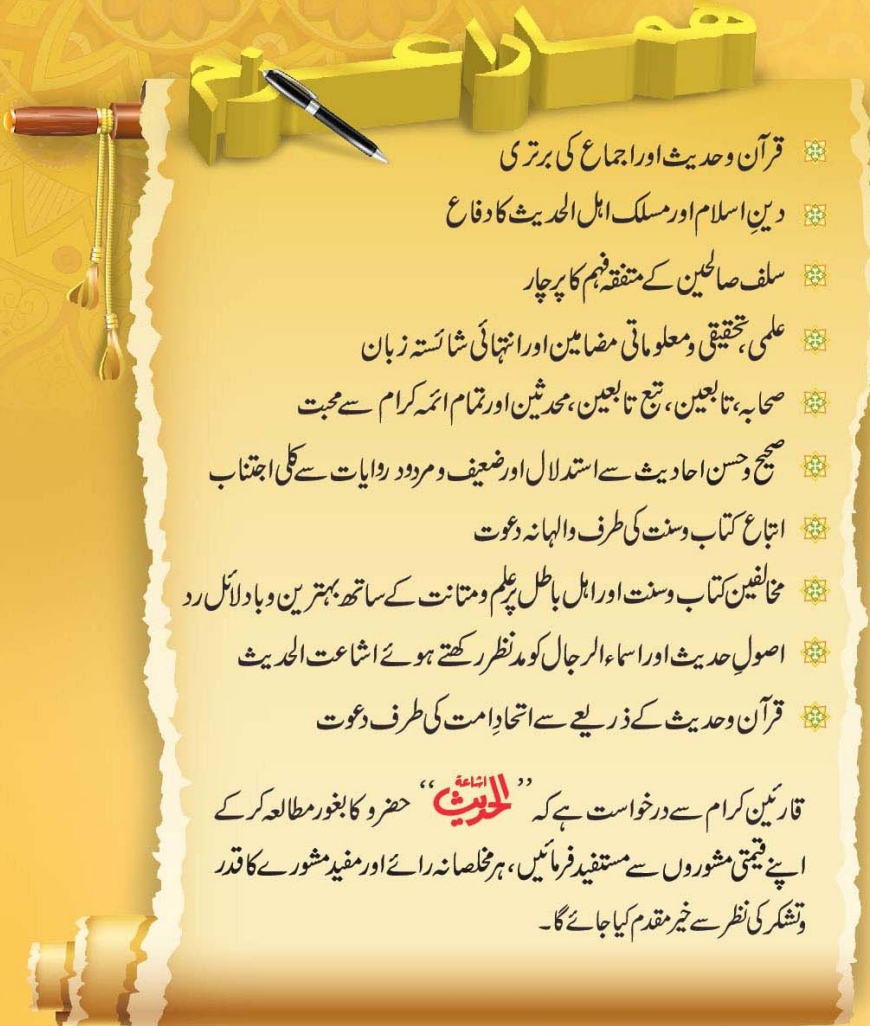 ھمارا عزم
قرآن وحدیث اور اجماع کی برتری
دینِ اسلام اور مسلک اہل الحدیث کا دفاع
سلف صالحین کے متفقہ فہم کا پرچار
علمی، تحقیقی و معلوماتی مضامین اور انتہائی شائستہ زبان
صحابہ، تابعین، تبع تابعین، محدثین اور تمام ائمہ کرام سے محبت
صحیح و حسن احادیث سے استدلال اور ضعیف و مردود روایات سے کلی اجتناب
اتباع کتاب وسنت کی طرف والہانہ دعوت
مخالفین کتاب وسنت اور اہل باطل پر علم و متانت کے ساتھ بہترین و با دلائل رد
اصولِ حدیث اور اسماء الرجال کو مدنظر رکھتے ہوئے اشاعت الحدیث
قرآن وحدیث کے ذریعے سے اتحادِ امت کی طرف دعوت
قارئین کرام سے درخواست ہے کہ ’’اشاعۃ الحدیث‘‘ حضرو کا بغور مطالعہ کر کے
اپنے قیمتی مشوروں سے مستفید فرمائیں، ہر مخلصانہ رائے اور مفید مشورے کا قدر
وتشکر کی نظر سے خیر مقدم کیا جائے گا۔